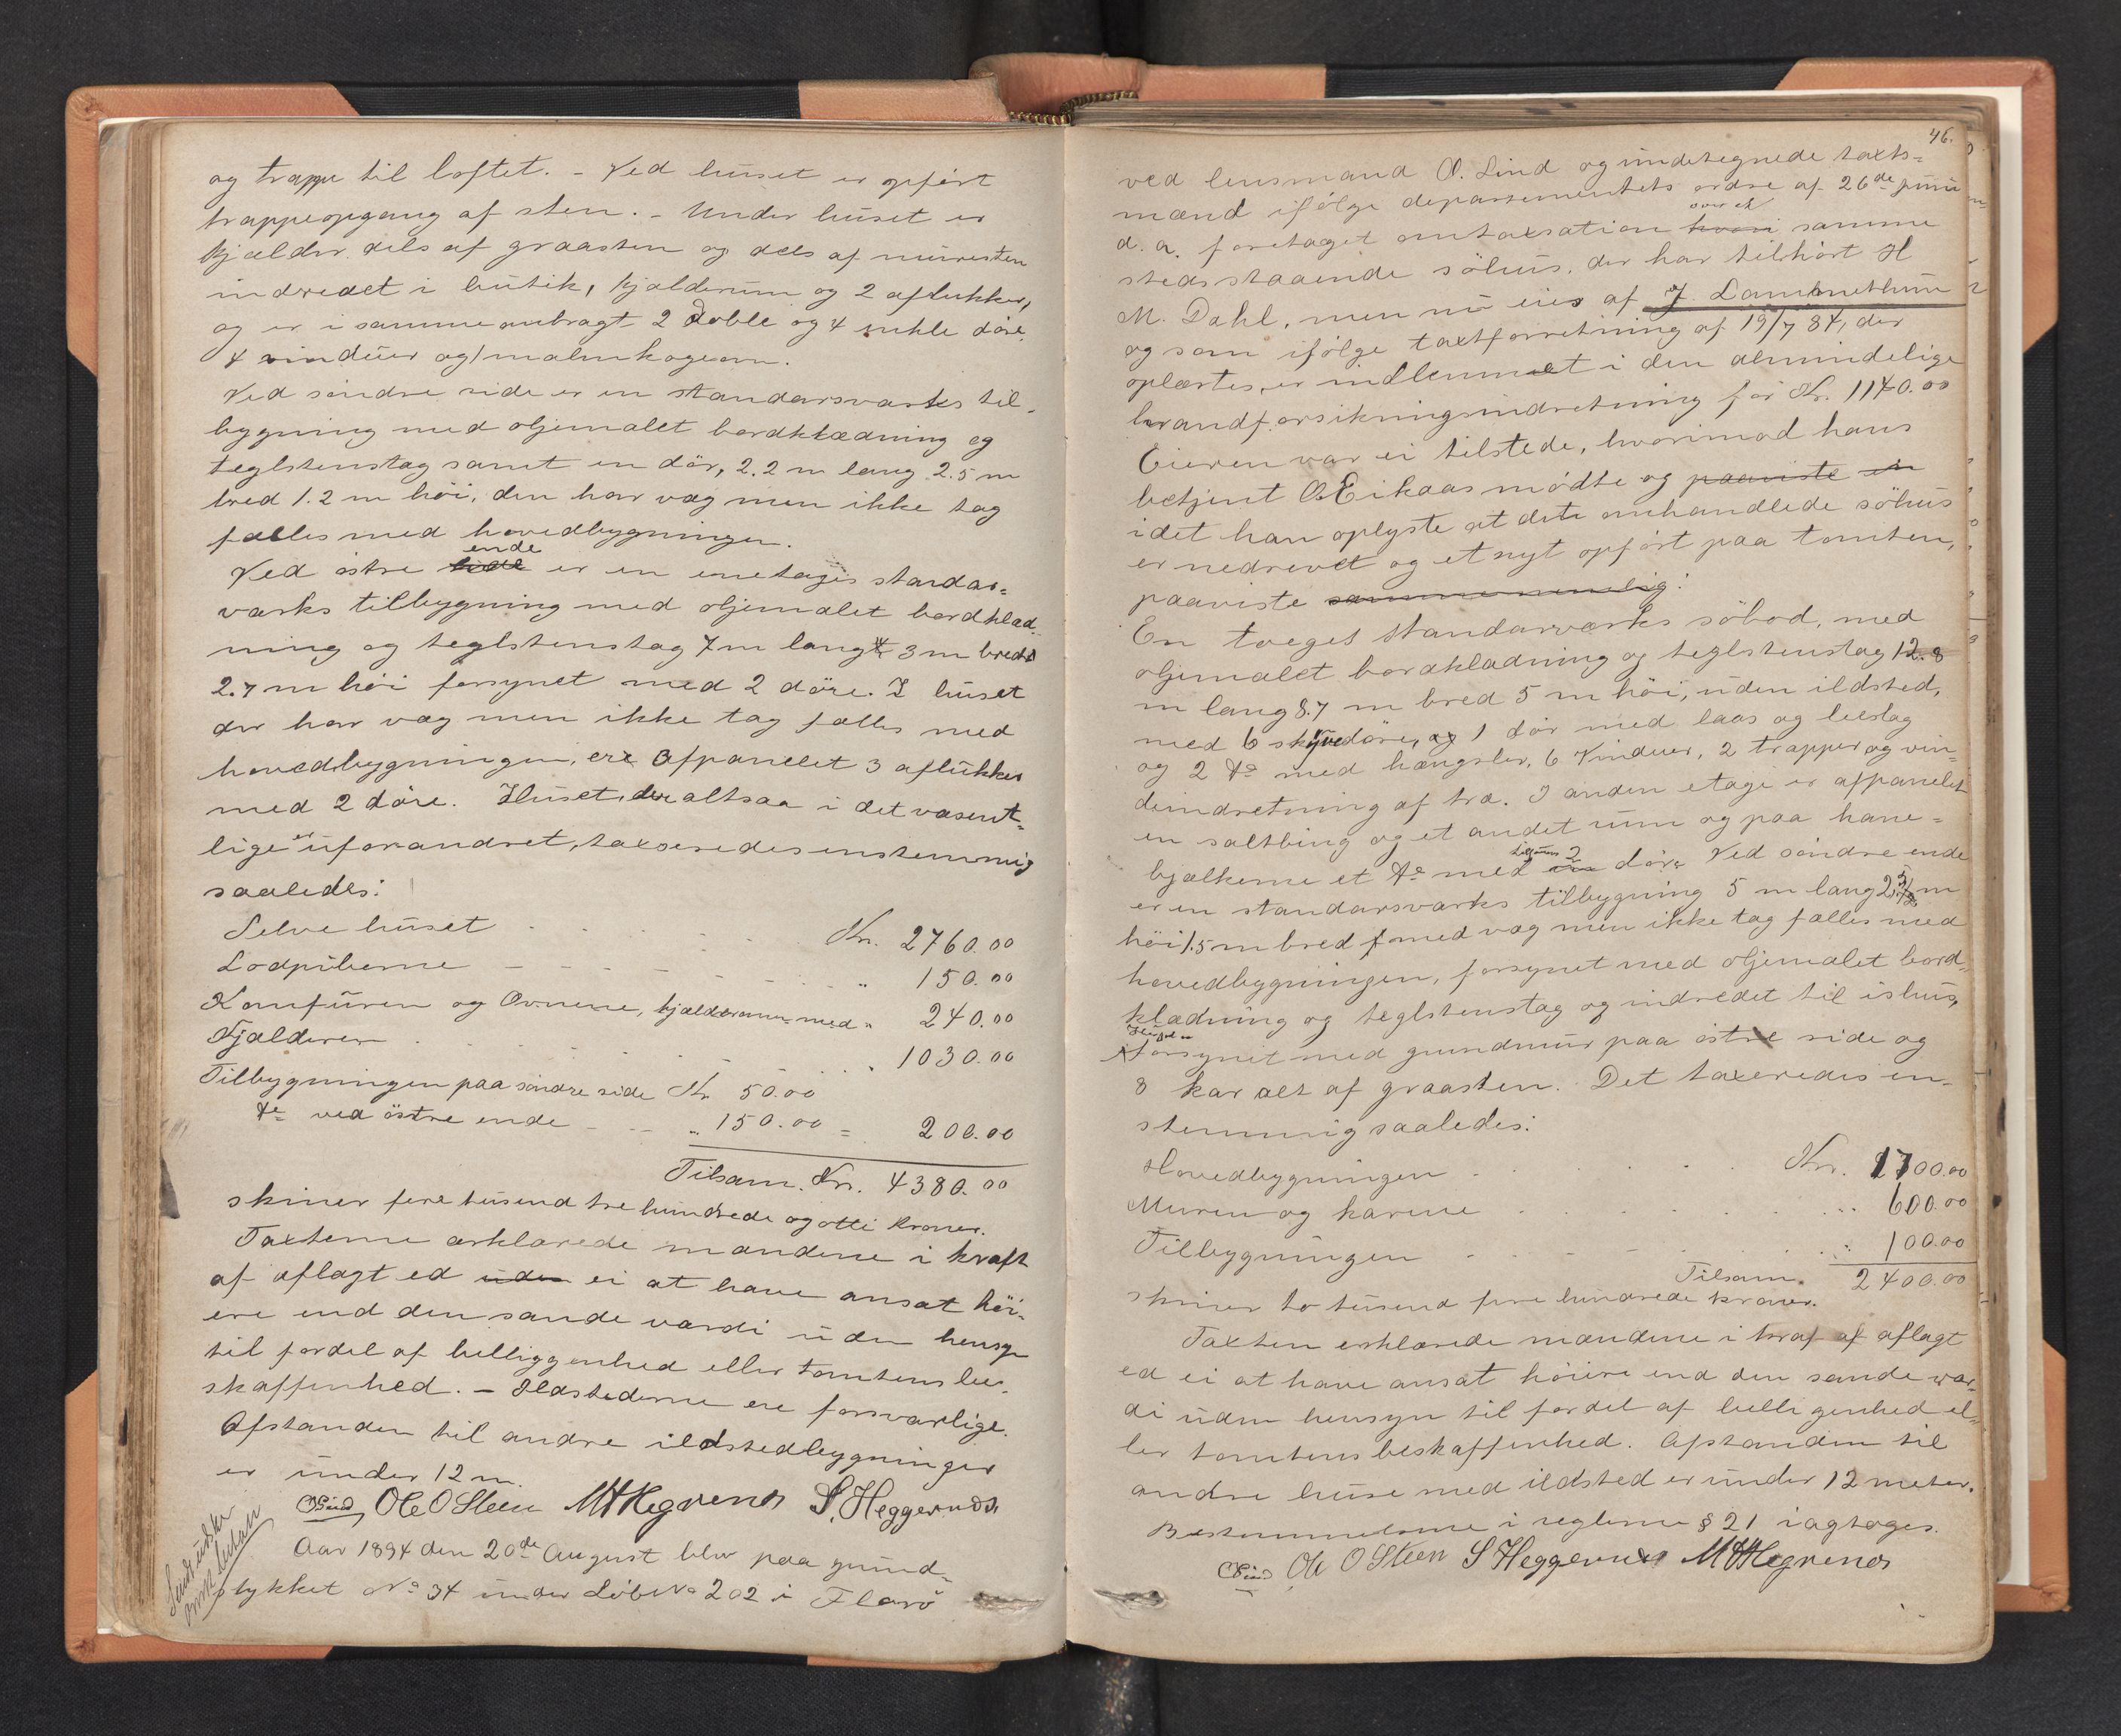 og trappe til loftet. - Ved huset er opført
trappeopgang af sten. - Under huset er
kjælder dels af graasten og dels af mursten
indredet i butik, kjælderum og 2 aflukker,
og er i samme anbragt 2 doble og 4 enkle döre,
4 vinduer og 1 malmkogeovn.
Ved söndre side er en standarsværks til-
bygning med oljemalet bordklædning og
teglstenstag samt en dör, 2.2 m lang 2.5 m
bred 1.2 m höi, den har væg men ikke tag
fælles med hovedbygningen.
Ved östre side ende er en enetages standar-
værks tilbygning med oljemalet bordklæd-
ning og teglstenstag 7 m lang 3 m bred
2.7 m höi forsynet med 2 döre. I huset
der har væg men ikke tag fælles med
hovedbygningen, ere afpanelet 3 aflukker
med 2 döre. Huset, der altsaa i det væsent-
lige er uforandret, taxeredes enstemmig
saaledes:
Selve huset Kr. 2760.00
Lodpiberne " 150.00
Komfuren og Ovnene, kjælderovnen med " 240.00
Kjælderen " 1030.00
Tilbygningen paa söndre side Kr. 50.00
do ved östre ende " 150.00 = 200.00
Tilsam. Kr. 4380.00
skiver fire tusend tre hundrede og otti kroner.
Taxterne erklærede mændene i kraft
af aflagt ed uden ei at have ansat höi-
ere end den sande værdi uden hensyn
til fordel af belliggenhed eller tomtens be-
skaffenhed. - Ildstederne ere forsvarlige.
Afstanden til andre ildstedbygninger
er under 12 m.
OLind, Ole O Steen MHHegrenes S. Heggernes
Aar 1894 den 20de August blev paa grund-
stykket No 34 under Löbe No 202 i Florö
46.
ved lensmand O. Lind og undetegnede taxts-
mænd ifölge departementets ordre af 26de juni
d. a. foretaget omtaxsation hvori over et samme
steds staaende söhus, der har tilhört H
M. Dahl, men nu eies af J. Lammethun
og som ifölge taxtforretning af 19/7 84, der
oplæstes, er indlemmet i den almindelige
brandforsikringsindretning for Kr. 1140.00
Eieren var ei tilstede, hvorimod hans
betjent O. Eikaas mödte og paaviste en
idet han oplyste at dete omhandlede söhus
er nedrevet og et nyt opfört paa tomten,
paaviste
En toeges standarværks söbod, med
oljemalet bordklædning og teglstenstag 12.8
m lang 8.7 m bred 5 m höi, uden ildsted,
med 6 skyvedöre, og 1 dör med laas og beslag
og 2 do med hængsler, 6 Vinduer, 2 trapper og vin-
deindretning af træ. I anden etage er afpanelet
en saltbing og et andet rum og paa hane-
bjælkerne et do med tilsams 2 döre Ved söndre ende
er en standarsværks tilbygning 5 m lang 2.5 m
höi 1.5 m bred med væg men ikke tag fælles med
hovedbygningen, forsynet med oljemalet bord-
klædning og teglstenstag og indredet til ishus,
Huset er
forsynet med grundmur paa östre side og
8 kar alt af graasten. Det taxeredes en-
stemmig saaledes:
Hovedbygningen Kr. 1700.00
Muren og karene " 600.00
Tilbygningen " 100.00
Tilsam. 2400.00
skriver to tusend fire hundrede kroner.
Taxten erklærede mændene i kraf af aflagt
ed ei at have ansat höiere end den sande vær-
di uden hensyn til fordel af belligenhed el-
ler tomtens beskaffenhed. Afstanden til
andre huse med ildsted er under 12 meter.
Bestemmelserne i reglerne § 21 iagtages.
OLind Ole O Steen S Heggernes MHHegrenes